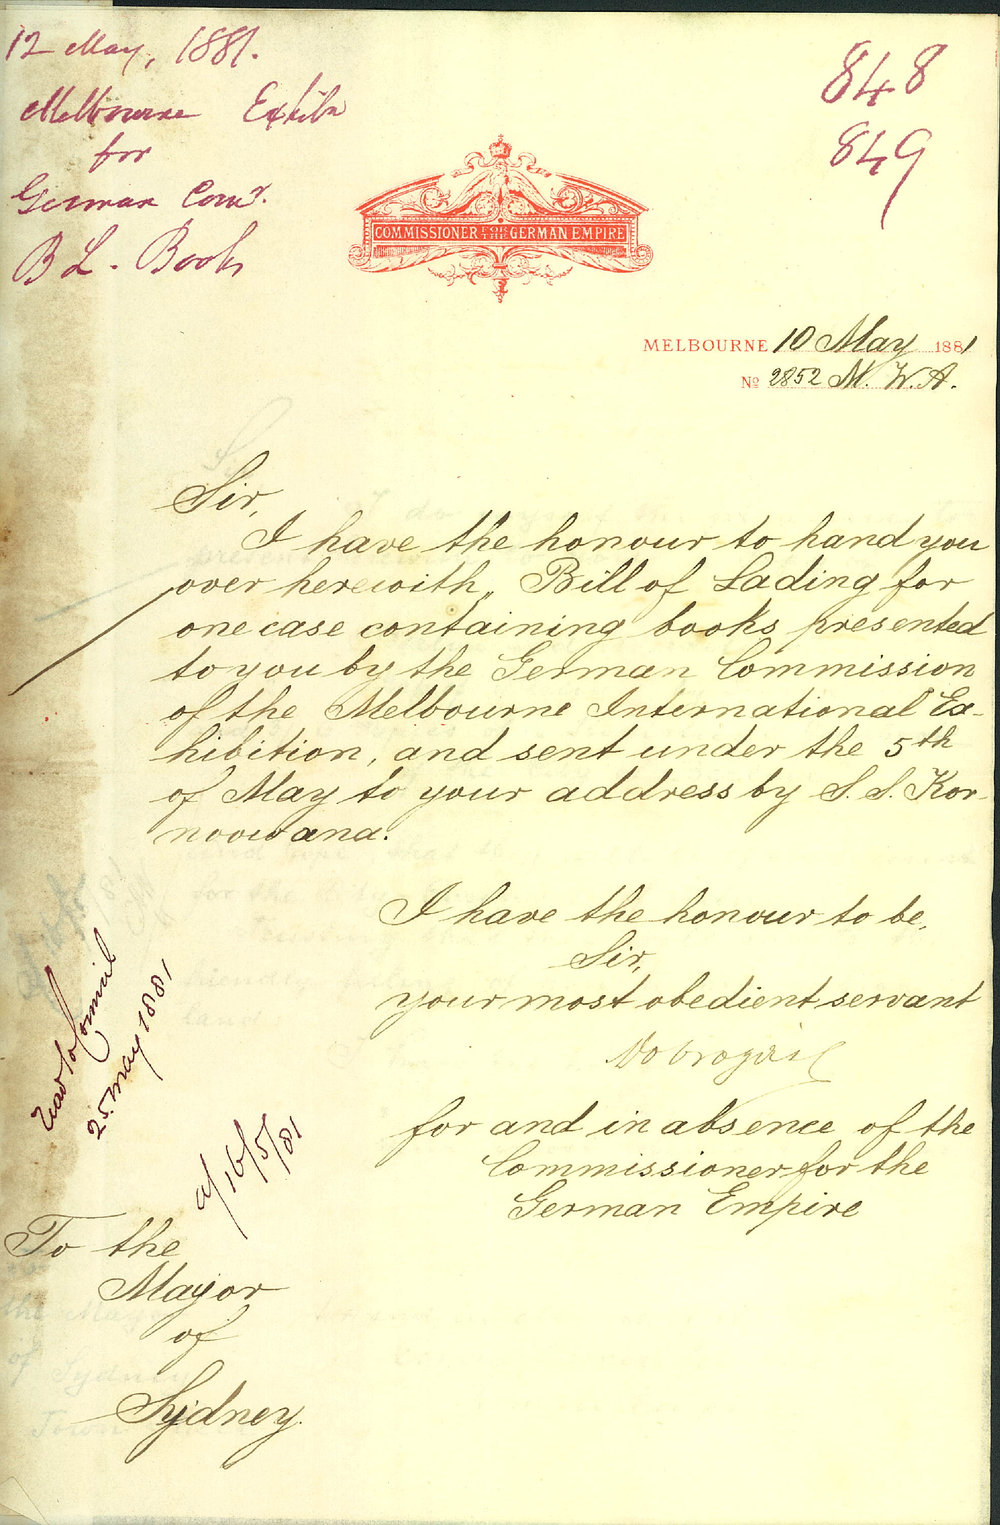 12 May, 1881.
Melbourne Exhibn
for
German Comr.
B L. Books
848
849
COMMISSIONER FOR THE GERMAN EMPIRE
MELBOURNE 10 May 1881
No 2852 M. W. A.
Sir,
I have the honour to hand you
over herewith, Bill of Lading for
one case containing books presented
to you by the German Commission
of the Melbourne International Ex-
hibition, and sent under the 5th
of May to your address by S. S. Kor-
noowana.
I have the honour to be,
Sir,
your most obedient servant
for and in absence of the
Commissioner for the
German Empire
read to Council
25. May 1881
a/ 16/5/81
To the
Mayor
of
Sydney.